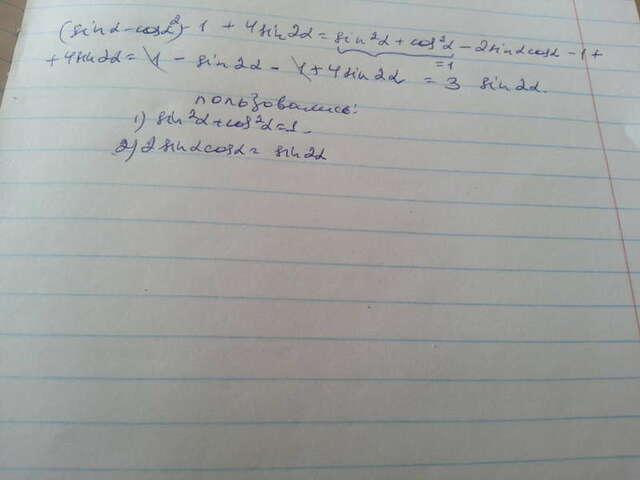 (sinα-cosα)²-1 + 4sin2α = sin²α + cos²α - 2sinαcosα - 1 +
=1
+ 4sin2α = 1 - sin2α - 1 + 4sin2α = 3 sin2α.
пользовались:
1) sin²α + cos²α = 1.
2) 2 sinα cosα = sin2α